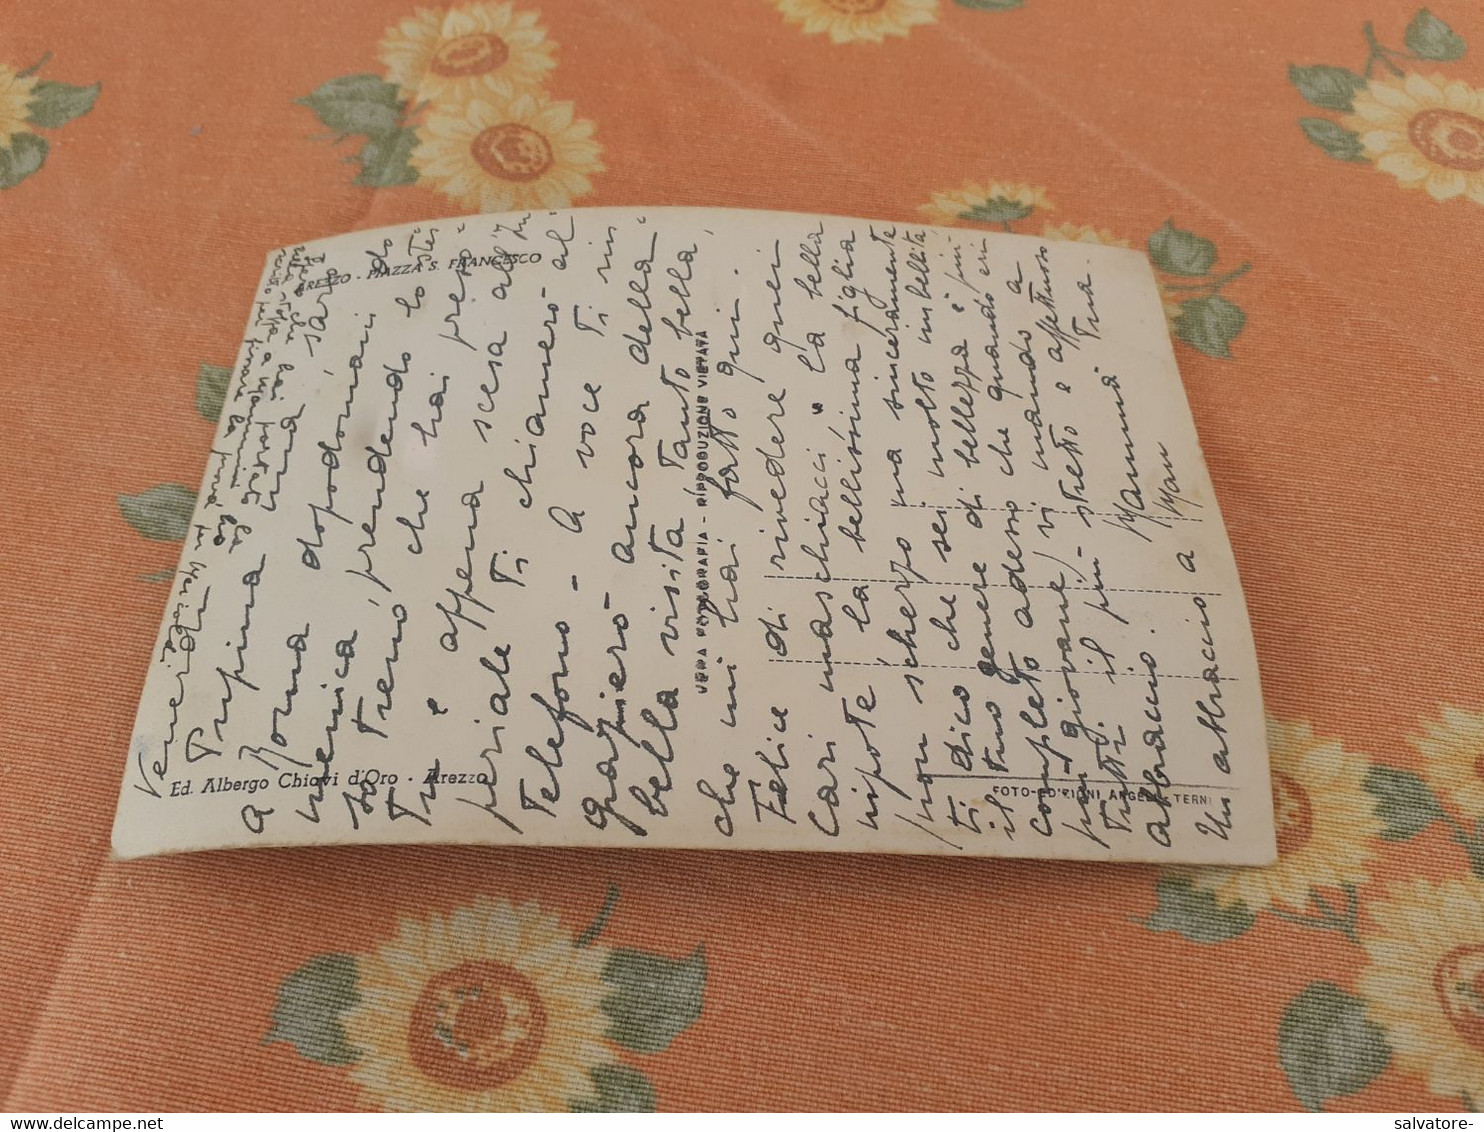 Venerdì
Pupina
a Roma dopodomani
menica sarò do
so treno, prendendo lo stes
tu e che hai preso
appena scesa all'Im
periale ti chiamerò al
telefono - A voce ti rin
grazierò ancora della
bella visita tanto bella,
che mi hai fatto qui.
Felice di rivedere quei
cari maschiacci e la bella
nipote la bellissima figlia
non scherzo ma sinceramente
ti dico che sei molto imbellita,
il tuo genere di bellezza è più
completo adesso che quando eri
più giovane/ vi mando a
tutti il più stretto e affettuoso
abbraccio. tua.
Mammà
Un abbraccio a Mau
AREZZO - PIAZZA S. FRANCESCO
Ed. Albergo Chiavi d'Oro - Arezzo
VERA FOTOGRAFIA - RIPRODUZIONE VIETATA
FOTO-EDIZIONI ANGELI TERNI
salvatore-